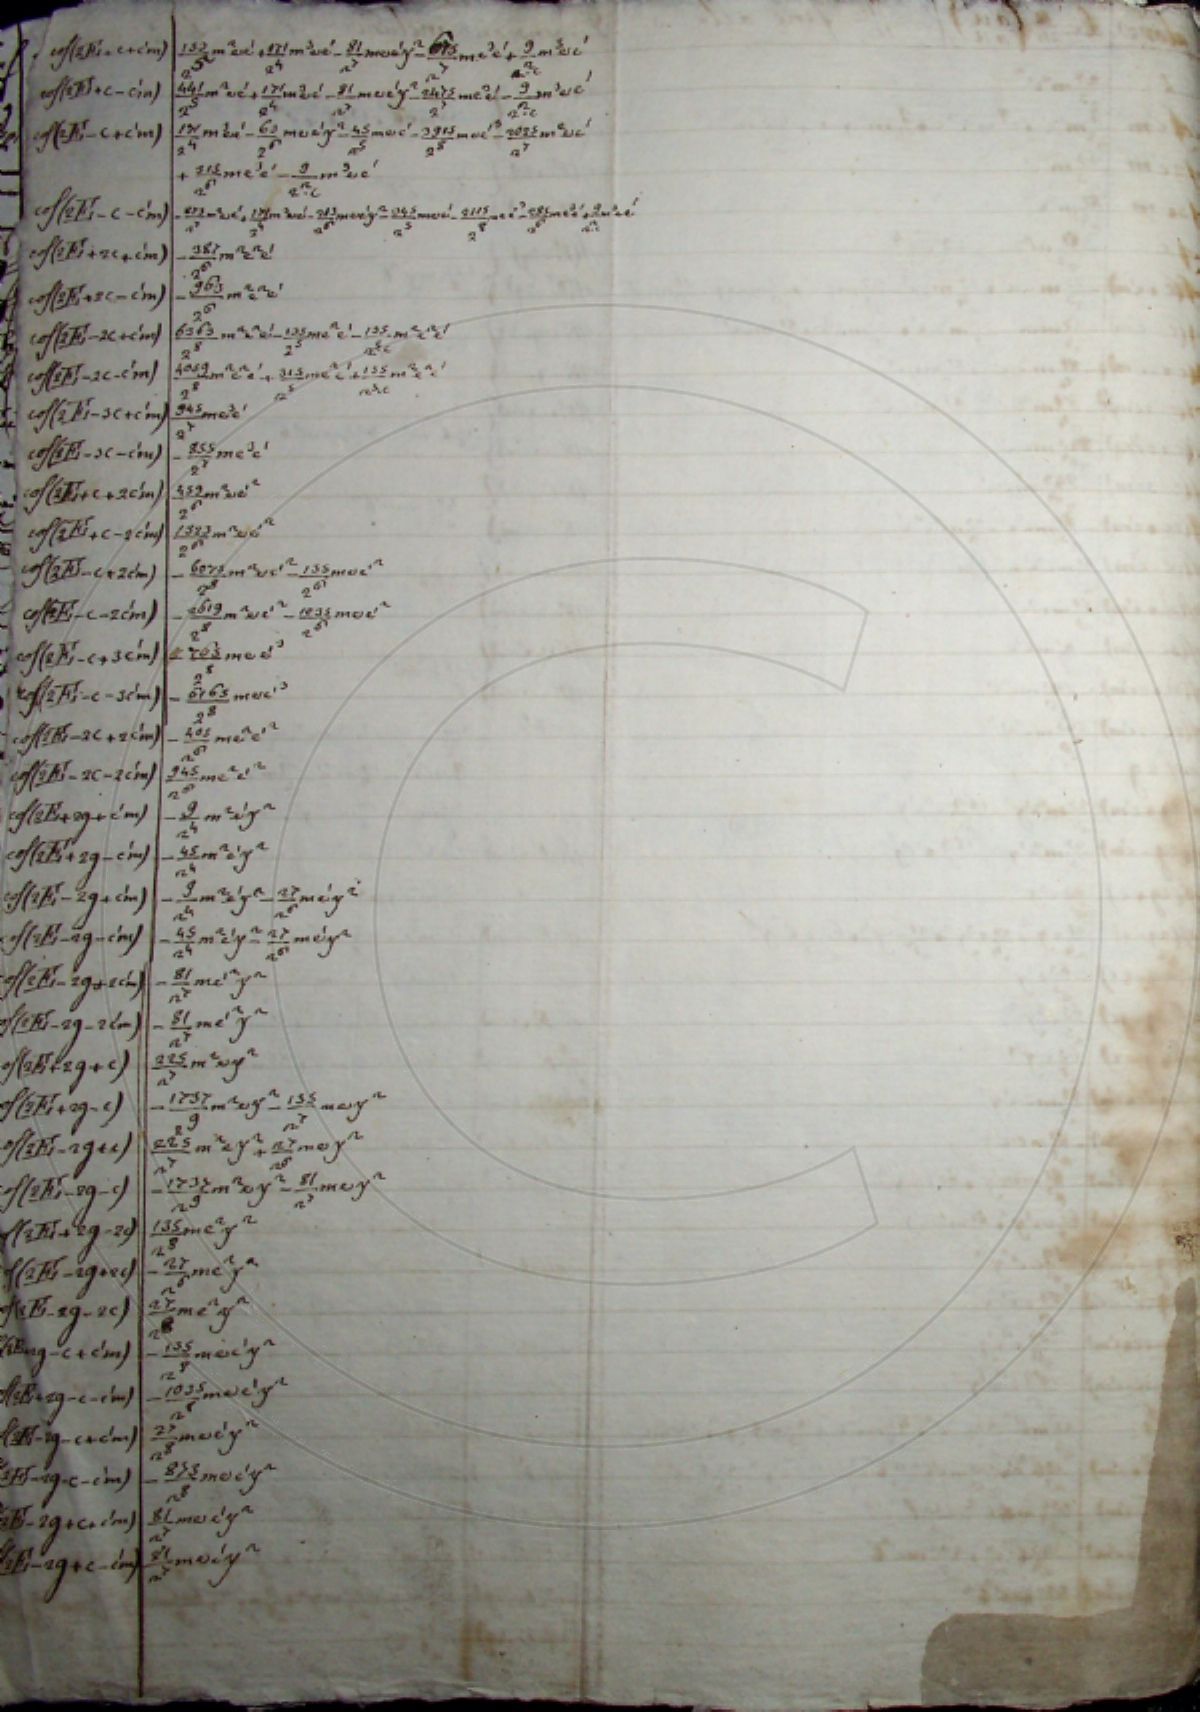 cof(2E'+c+c'm) 153/2^5 m²ee' + 171/2^4 m³ee' − 81/2^7 mee'γ² − 675/2^7 me³e' + 9/2^2c m³ee'
cof(2E'+c−c'm) 441/2^5 m²ee' + 171/2^4 m³ee' − 81/2^7 mee'γ² − 2475/2^7 me³e' − 9/2^2c m³ee'
cof(2E'−c+c'm) 171/2^4 m³ee' − 63/2^6 mee'γ² − 45/2^5 mee' − 3915/2^8 mee'³ − 2025/2^7 m²ee'
+ 215/2^6 me³e' − 9/2^2c m³ee'
cof(2E'−c−c'm) − 873/2^7 m²ee' + 171/2^4 m³ee' − 213/2^6 mee'γ² − 345/2^5 mee' − 2115/2^8 mee'³ − 285/2^6 me³e' + 9/2^2c m³ee'
cof(2E'+2c+c'm) − 387/2^6 m²e²e'
cof(2E'+2c−c'm) − 963/2^6 m²e²e'
cof(2E'−2c+c'm) 6363/2^8 m²e²e' − 135/2^5 me²e' − 135/2^5c m²e²e'
cof(2E'−2c−c'm) 4059/2^8 m²e²e' + 315/2^5 me²e' + 135/2^5c m²e²e'
cof(2E'−3c+c'm) 945/2^7 me³e'
cof(2E'−3c−c'm) − 855/2^7 me³e'
cof(2E'+c+2c'm) 459/2^6 m²ee'²
cof(2E'+c−2c'm) 1323/2^6 m²ee'²
cof(2E'−c+2c'm) − 6075/2^8 m²ee'² − 135/2^6 mee'²
cof(2E'−c−2c'm) − 2619/2^8 m²ee'² − 1035/2^6 mee'²
cof(2E'−c+3c'm) − 765/2^8 mee'³
cof(2E'−c−3c'm) − 6165/2^8 mee'³
cof(2E'−2c+2c'm) − 405/2^6 me²e'²
cof(2E'−2c−2c'm) 945/2^6 me²e'²
cof(2E'+2g+c'm) − 9/2^4 m²e'γ²
cof(2E'+2g−c'm) − 45/2^4 m²e'γ²
cof(2E'−2g+c'm) − 9/2^4 m²e'γ² − 27/2^6 me'γ²
cof(2E'−2g−c'm) − 45/2^4 m²e'γ² − 27/2^6 me'γ²
cof(2E'−2g+2c'm) − 81/2^7 me'²γ²
of(2E'−2g−2c'm) − 81/2^7 me'²γ²
of(2E'+2g+c) 225/2^7 m²eγ²
of(2E'+2g−c) − 1737/2^9 m²eγ² − 135/2^7 meγ²
of(2E'−2g+c) 225/2^7 m²eγ² + 27/2^6 meγ²
of(2E'−2g−c) − 1737/2^9 m²eγ² − 81/2^7 meγ²
f(2E'+2g−2c) 135/2^8 me²γ²
f(2E'−2g+2c) − 27/2^6 me²γ²
f(2E'−2g−2c) 27/2^8 me²γ²
(2E'+2g−c+c'm) − 135/2^8 mee'γ²
f(2E'+2g−c−c'm) − 1035/2^8 mee'γ²
f(2E'−2g−c+c'm) 27/2^8 mee'γ²
2E'−2g−c−c'm) − 873/2^8 mee'γ²
2E'−2g+c+c'm) 81/2^7 mee'γ²
2E'−2g+c−c'm) 81/2^7 mee'γ²